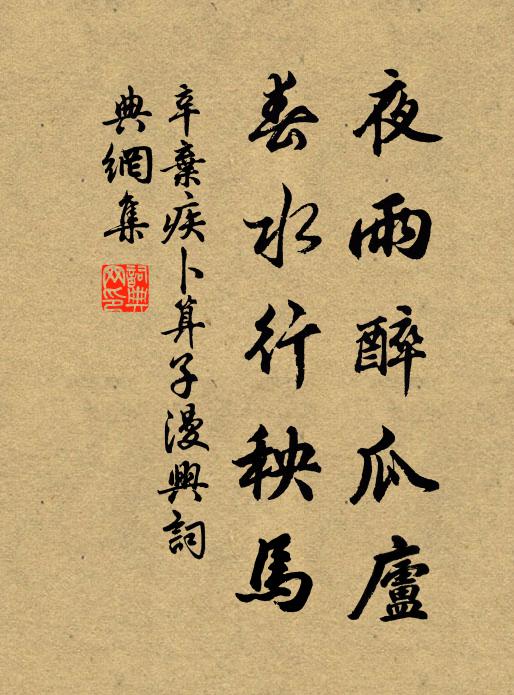 夜雨醉瓜廬
春水行秧馬
辛棄疾卜算子漫興詞
典網集
詞典網印